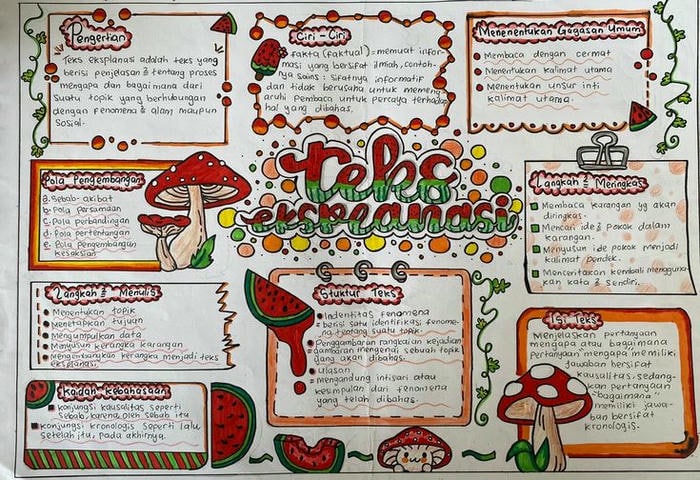 Pengertian
Teks eksplanasi adalah teks yang
berisi penjelasan² tentang proses
mengapa dan bagaimana dari
suatu topik yang berhubungan
dengan fenomena² alam maupun
sosial.
Ciri-Ciri
fakta (faktual) = memuat infor-
masi yang bersifat ilmiah, contoh-
nya sains : sifatnya informatif
dan tidak berusaha untuk memeng-
aruhi pembaca untuk percaya terhadap
hal yang dibahas.
Menenentukan Gagasan Umum
Membaca dengan cermat
Menentukan kalimat utama
Menentukan unsur inti
kalimat utama.
Pola Pengembangan
a. Sebab-akibat
b. Pola Persamaan
c. Pola perbandingan
d. Pola pertentangan
e. Pola Pengembangan
kesaksian
teks
eksplanasi
Langkah² Meringkas
Membaca karangan yg akan
diringkas.
Mencari ide² pokok dalam
karangan.
Menyusun ide pokok menjadi
kalimat pendek.
Menceritakan kembali mengguna
kan kata² sendiri.
Langkah² Menulis
Menentukan topik
Menetapkan tujuan
Mengumpulkan data
Menyusun kerangka karangan
Mengembangkan kerangka menjadi teks
eksplanasi.
Stuktur Teks
Indentitas fenomena
= berisi satu identifikasi fenome-
na tentang suatu topik.
Penggambaran rangkaian kejadian
= gambaran mengenai sebuah topik
yang akan dibahas.
ulasan
= mengandung intisari atau
kesimpulan dari fenomena
yang telah dibahas.
Isi Teks
Menjelaskan pertanyaan
mengapa atau bagaimana
Pertanyaan "mengapa memiliki
jawaban bersifat
kausalitas, sedang-
kan pertanyaan
"bagaimana"
memiliki jawa-
ban bersifat
kronologis.
Kaidah Kebahasaan
konjungsi kausalitas seperti
sebab, karena, oleh sebab itu
konjungsi kronologis seperti lalu,
setelah itu, pada akhirnya.